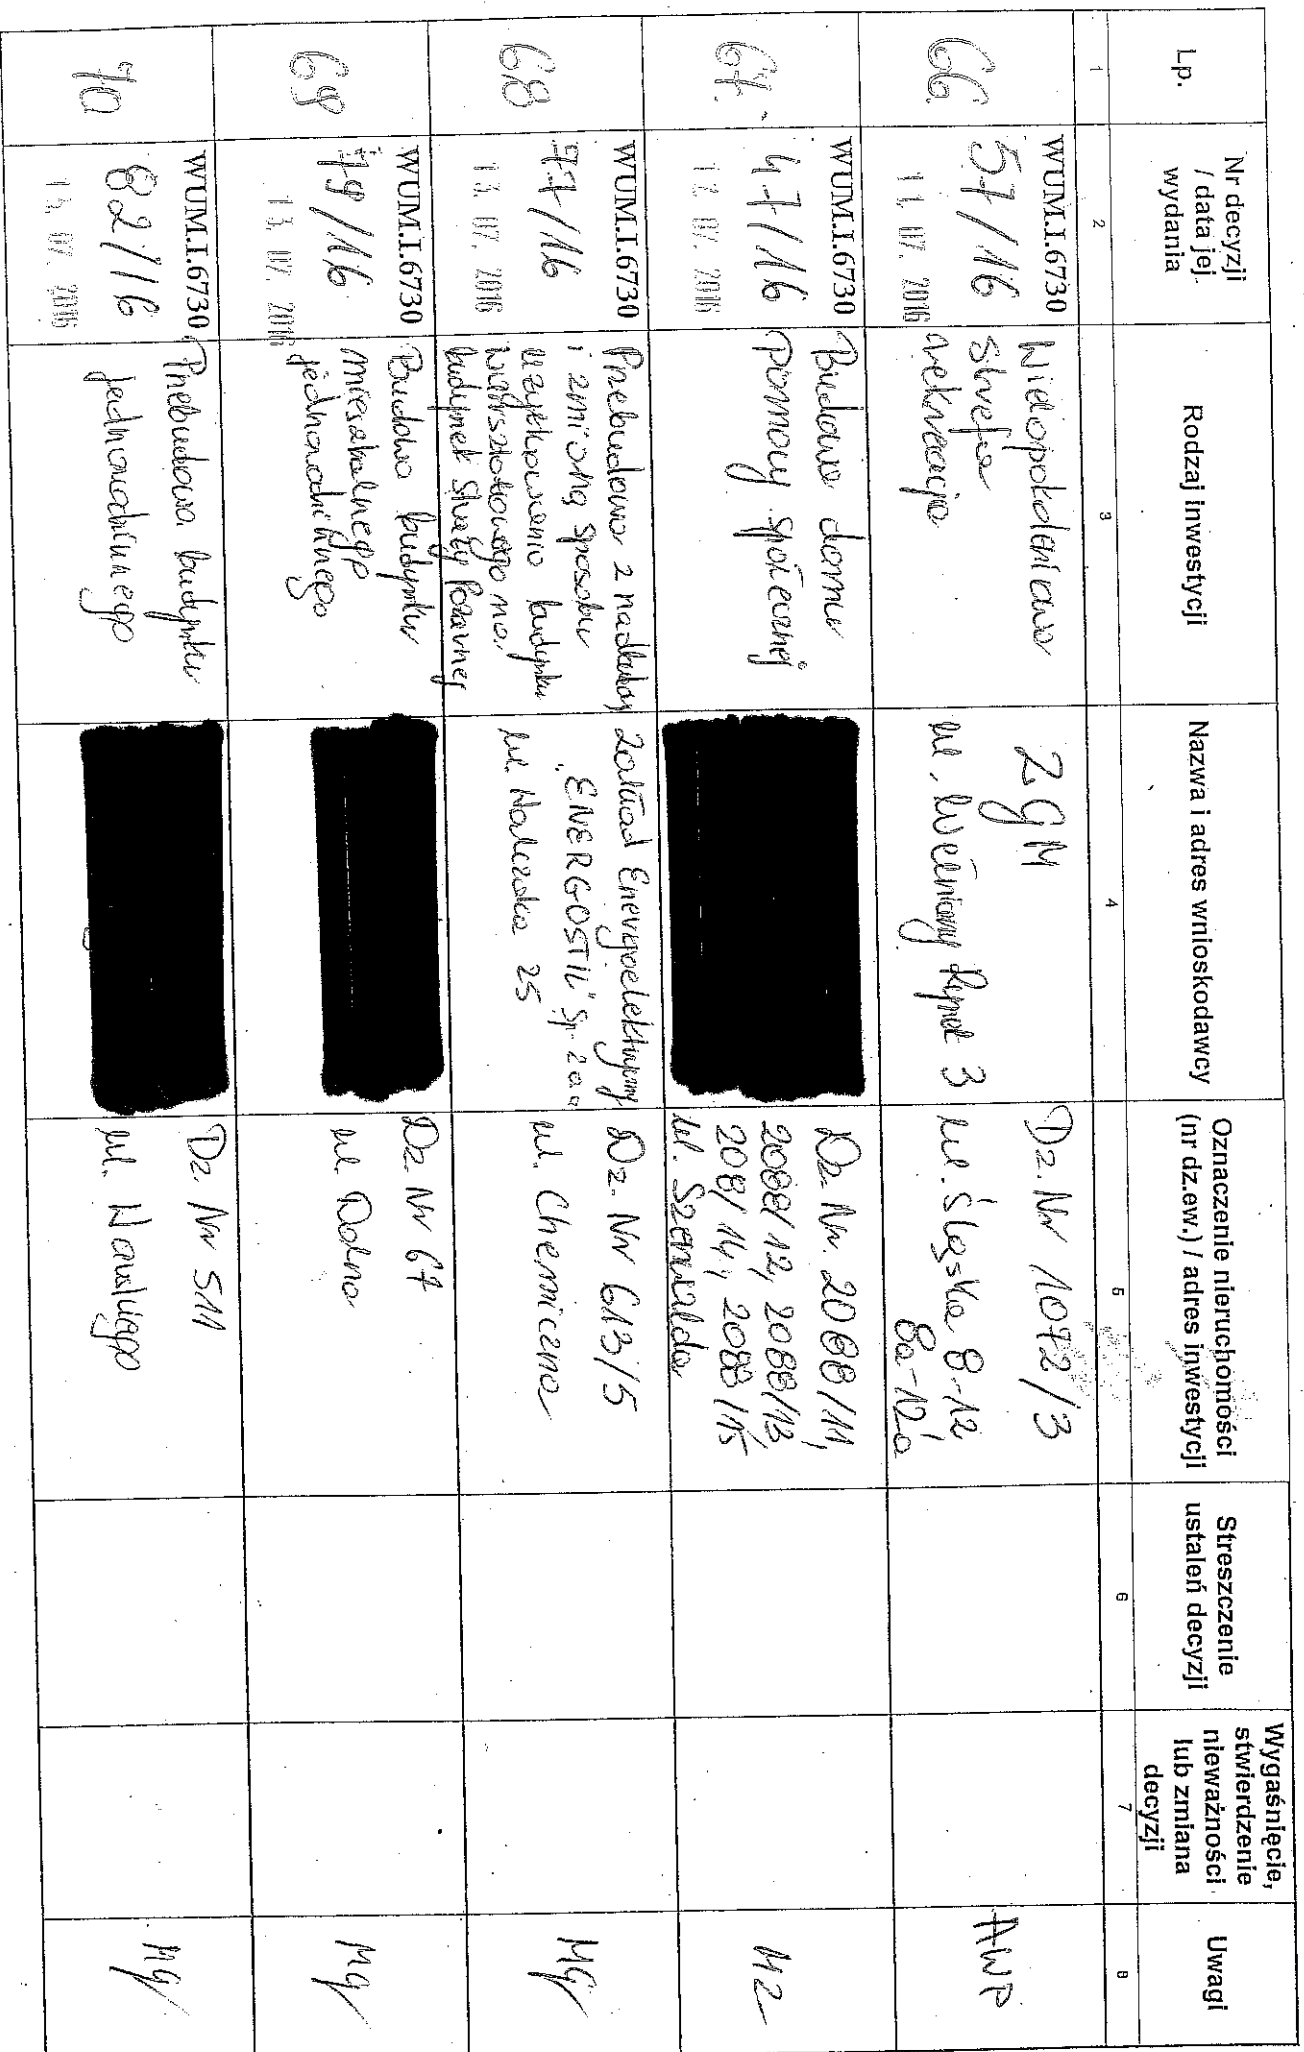 Lp.
Nr decyzji
/ data jej
wydania
Rodzaj inwestycji
Nazwa i adres wnioskodawcy
Oznaczenie nieruchomości
(nr dz.ew.) / adres inwestycji
Streszczenie
ustaleń decyzji
Wygaśnięcie,
stwierdzenie
nieważności
lub zmiana
decyzji
Uwagi
1
2
3
4
5
6
7
8
66
WUM.I.6730
57/16
11. 07. 2016
Wielopokoleniowa
strefa
rekreacja
ZGM
ul. Wełniany Rynek 3
Dz. Nr 1072/3
ul. Śląska 8-12,
8a-12a
AWP
67.
WUM.I.6730
47/16
12. 07. 2016
Budowa domu
pomocy społecznej
Dz. Nr. 2088/11,
2088/12, 2088/13
208/14, 2088/15
ul. Szenwalda
MZ
68
WUM.I.6730
77/16
13. 07. 2016
Przebudowa z nadbudową
i zmianą sposobu
użytkowania budynku
warsztatowego na
budynek Straży Pożarnej
Zakład Energoelektryczny
"ENERGOSTIL" Sp. z o.o
ul. Walczaka 25
Dz. Nr 613/5
ul. Chemiczna
MG
69
WUM.I.6730
79/16
13. 07. 2016
Budowa budynku
mieszkalnego
jednorodzinnego
Dz. Nr 67
ul. Dolna
MG
70
WUM.I.6730
82/16
13. 07. 2016
Przebudowa budynku
jednorodzinnego
Dz. Nr 511
ul.
MG